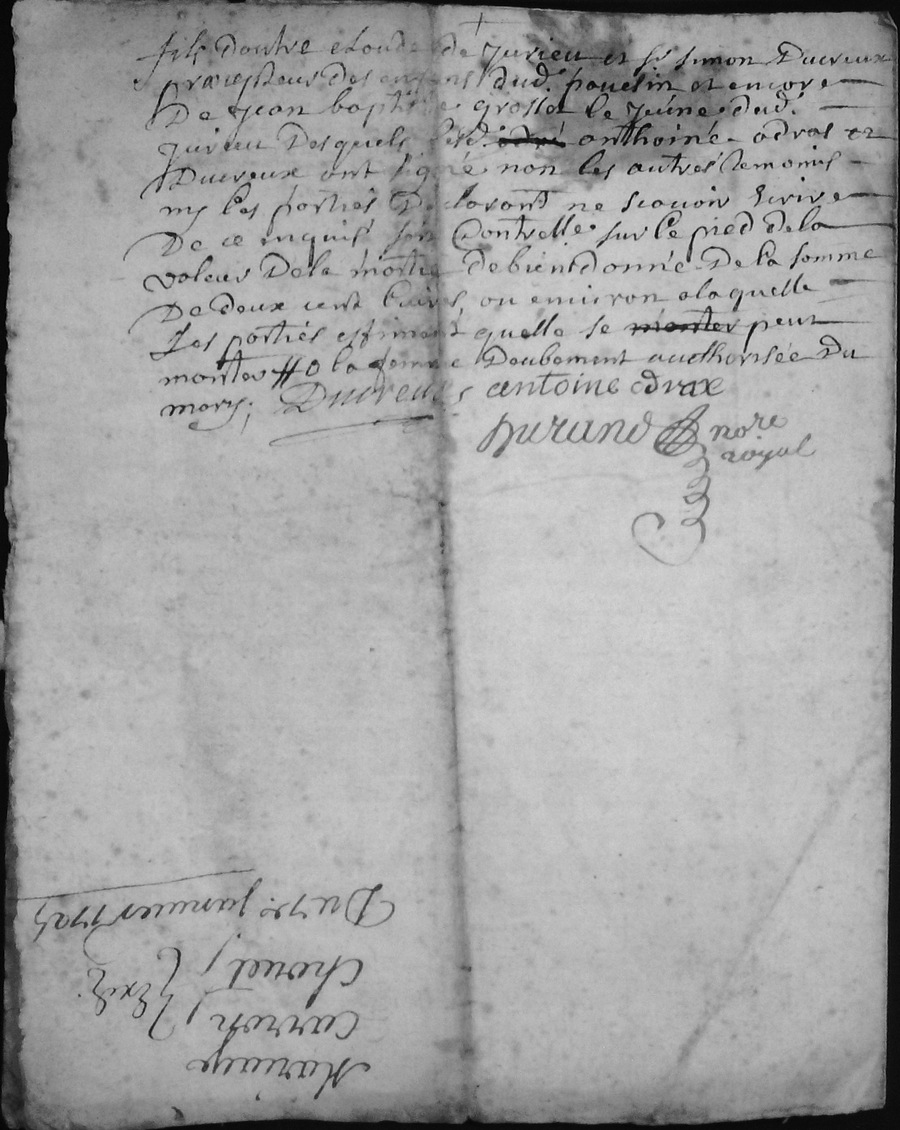 fils d'autre claude de Jurieu et sr. Simon Ducreux
precepteur des enfans dud. pavezin et encore
De Jean baptiste grosset le Jeune dud.
Jurieu Desquels lesd. anthoine odras et
Ducreux ont signé non les autres temoins
ny les parties Declarant ne scavoir Ecrire
De ce enquis sera Controllé sur le pied de la
valeur De la moitie de bient donné De la somme
De deux cent livres ou environ a laquelle
Les parties estiment quelle se monter peut
monter # a la femme Deubement authorisée Du
mary; Ducreux antoine odrax
Durand nore
royal
Mariage
Carrot
Chouet
Exp.
Du 7e. janvier 1725